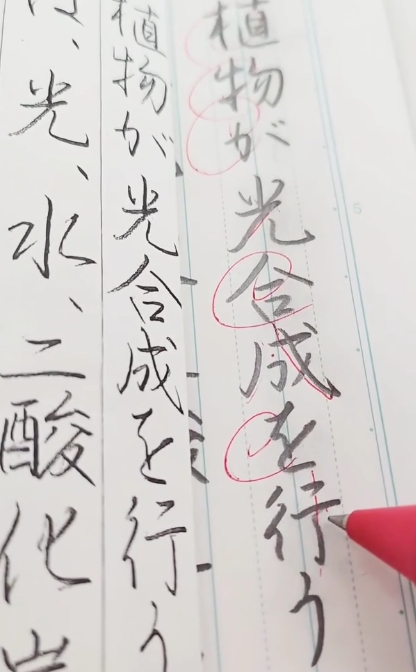 植物が光合成を行う
植物が光合成を行う
は、光、水、二酸化炭
5